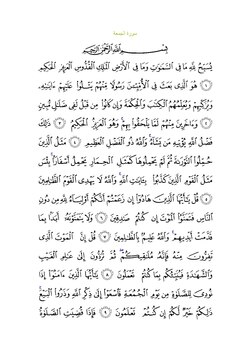 سورة الجمعة
بِسْمِ اللَّهِ الرَّحْمَٰنِ الرَّحِيمِ
يُسَبِّحُ لِلَّهِ مَا فِي السَّمَاوَاتِ وَمَا فِي الْأَرْضِ الْمَلِكِ الْقُدُّوسِ الْعَزِيزِ الْحَكِيمِ
١ هُوَ الَّذِي بَعَثَ فِي الْأُمِّيِّينَ رَسُولًا مِنْهُمْ يَتْلُوا عَلَيْهِمْ آيَاتِهِ
وَيُزَكِّيهِمْ وَيُعَلِّمُهُمُ الْكِتَابَ وَالْحِكْمَةَ وَإِنْ كَانُوا مِنْ قَبْلُ لَفِي ضَلَالٍ مُبِينٍ
٢ وَآخَرِينَ مِنْهُمْ لَمَّا يَلْحَقُوا بِهِمْ وَهُوَ الْعَزِيزُ الْحَكِيمُ ٣ ذَٰلِكَ
فَضْلُ اللَّهِ يُؤْتِيهِ مَنْ يَشَاءُ وَاللَّهُ ذُو الْفَضْلِ الْعَظِيمِ ٤ مَثَلُ الَّذِينَ
حُمِّلُوا التَّوْرَاةَ ثُمَّ لَمْ يَحْمِلُوهَا كَمَثَلِ الْحِمَارِ يَحْمِلُ أَسْفَارًا بِئْسَ
مَثَلُ الْقَوْمِ الَّذِينَ كَذَّبُوا بِآيَاتِ اللَّهِ وَاللَّهُ لَا يَهْدِي الْقَوْمَ الظَّالِمِينَ
٥ قُلْ يَا أَيُّهَا الَّذِينَ هَادُوا إِنْ زَعَمْتُمْ أَنَّكُمْ أَوْلِيَاءُ لِلَّهِ مِنْ دُونِ
النَّاسِ فَتَمَنَّوُا الْمَوْتَ إِنْ كُنْتُمْ صَادِقِينَ ٦ وَلَا يَتَمَنَّوْنَهُ أَبَدًا بِمَا
قَدَّمَتْ أَيْدِيهِمْ وَاللَّهُ عَلِيمٌ بِالظَّالِمِينَ ٧ قُلْ إِنَّ الْمَوْتَ الَّذِي
تَفِرُّونَ مِنْهُ فَإِنَّهُ مُلَاقِيكُمْ ثُمَّ تُرَدُّونَ إِلَىٰ عَالِمِ الْغَيْبِ
وَالشَّهَادَةِ فَيُنَبِّئُكُمْ بِمَا كُنْتُمْ تَعْمَلُونَ ٨ يَا أَيُّهَا الَّذِينَ آمَنُوا إِذَا
نُودِيَ لِلصَّلَاةِ مِنْ يَوْمِ الْجُمُعَةِ فَاسْعَوْا إِلَىٰ ذِكْرِ اللَّهِ وَذَرُوا الْبَيْعَ
ذَٰلِكُمْ خَيْرٌ لَكُمْ إِنْ كُنْتُمْ تَعْلَمُونَ ٩ فَإِذَا قُضِيَتِ الصَّلَاةُ